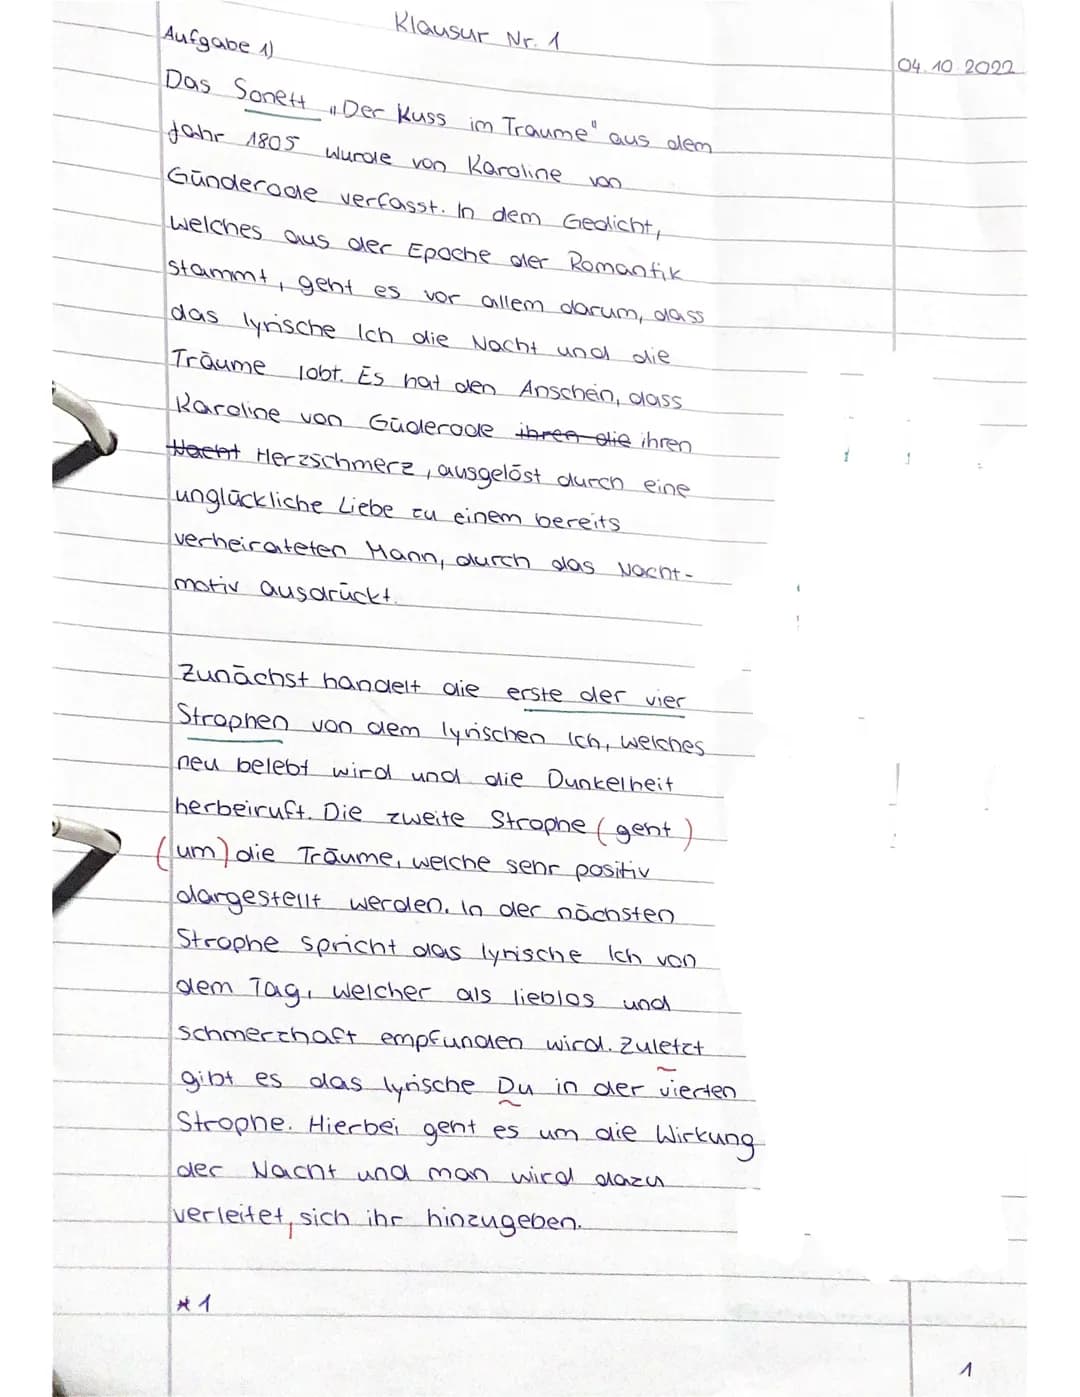 Klausur Nr. 1
Aufgabe 1)
04.10.2022
Das Sonett „Der Kuss im Traume" aus dem
Jahr 1805 wurde von Karoline von
Günderode verfasst. In dem Gedicht,
welches aus der Epoche der Romantik
stammt, geht es vor allem darum, dass
das lyrische Ich die Nacht und die
Träume lobt. Es hat den Anschein, dass
Karoline von Güderode ihren die ihren
Nacht Herzschmerz, ausgelöst durch eine
unglückliche Liebe zu einem bereits
verheirateten Mann, durch das Nacht-
motiv ausdrückt.
Zunächst handelt die erste der vier
Strophen von dem lyrischen Ich, welches
neu belebt wird und die Dunkelheit
herbeiruft. Die zweite Strophe (geht)
(um) die Träume, welche sehr positiv
dargestellt werden. In der nächsten
Strophe spricht das lyrische Ich von
dem Tag, welcher als lieblos und
schmerzhaft empfunden wird. Zuletzt
gibt es das lyrische Du in der vierten
Strophe. Hierbei geht es um die Wirkung
der Nacht und man wird dazu
verleitet, sich ihr hinzugeben.
*1
1